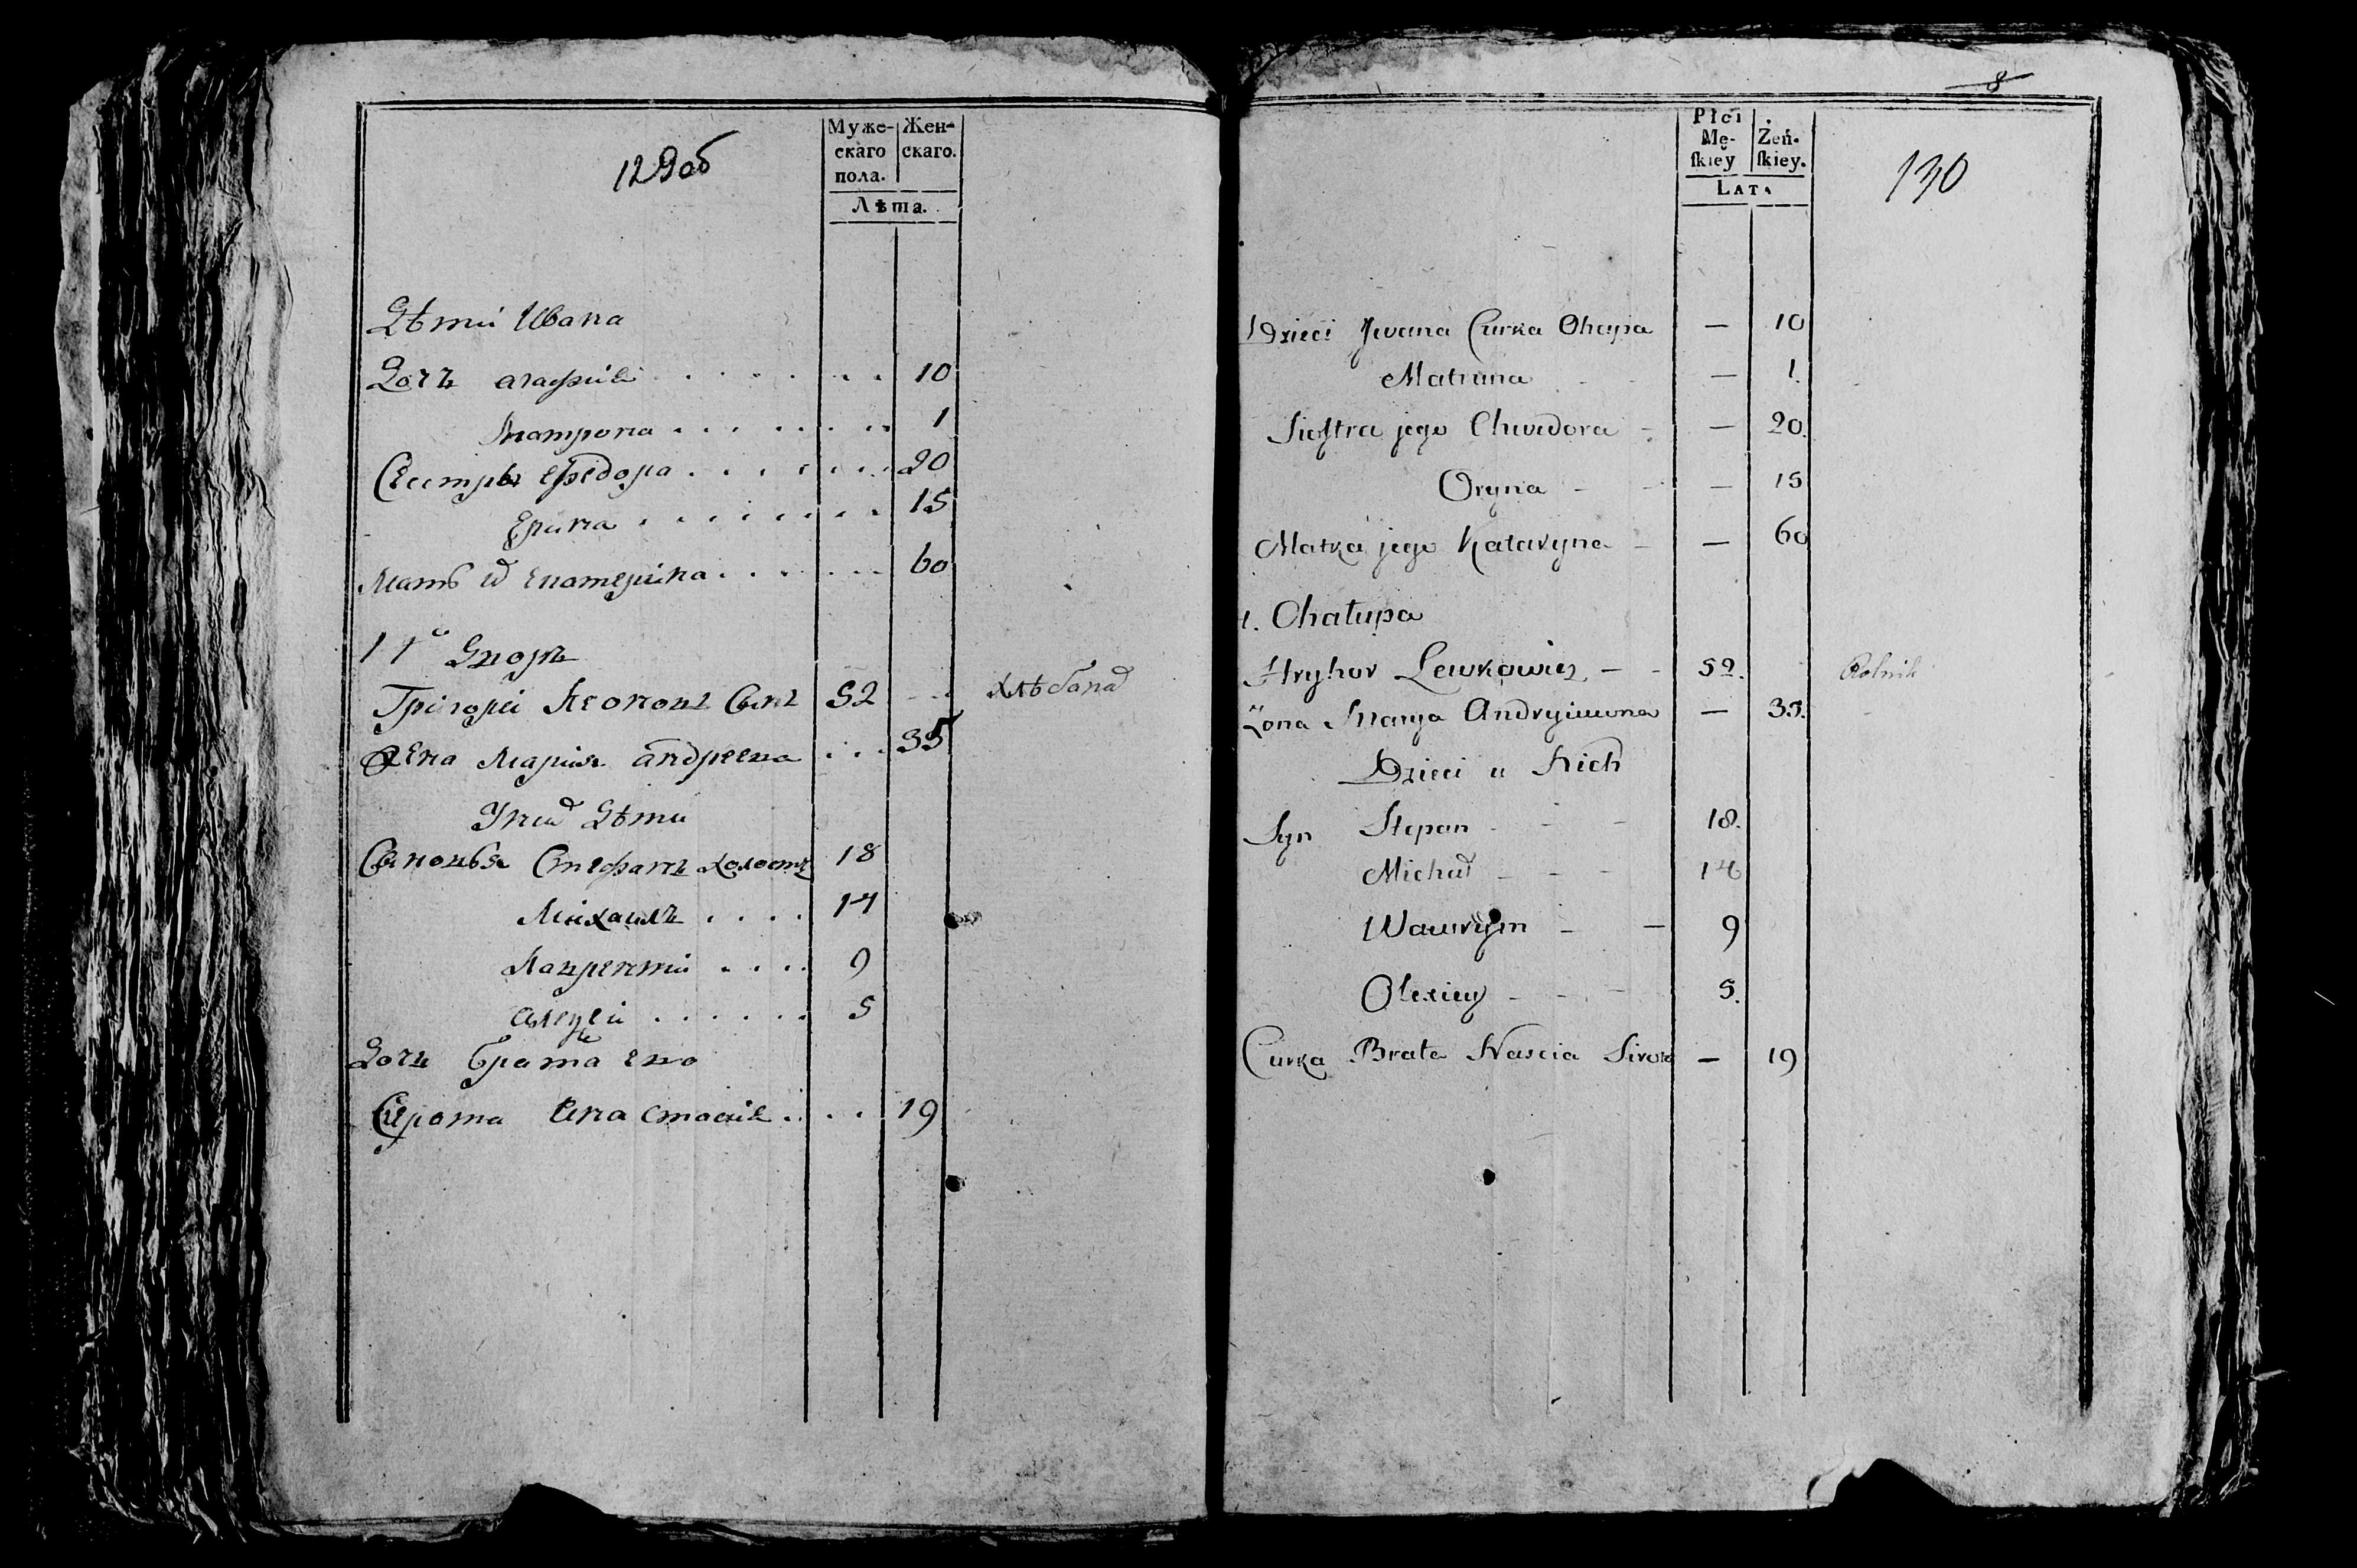 129об
Муже-
скаго
пола.
Жен-
скаго.
Лѣта.
Дѣти Ивана
Дочь агафия . . . . . . . 10
Матрона . . . . . . . 1
Сестры ефедора . . . . . . . 20
Ерина . . . . . . . 15
Мать их екатерина . . . . . . . 60
11й Дворъ
Григореи Леоновъ Сынъ 52 хлѣбопаш
Жена Мария андреева . . . 35
У них Дѣти
Сыновья Стефанъ холостъ 18
Михаилъ . . . . 14
Лаврентии . . . . 9
алеѯеи . . . . . . 5
Дочь брата ево
Сирота Анастасия . . . . 19
8
130
Płci
Mę-
ſkiey
Zeń-
ſkiey.
LATA
Dzieci Jwana Curka Ohapa — 10
Matruna — 1.
Siostra jego Chwedora — 20.
Oryna — 15
Matka jego Kataryna — 60
1. Chałupa
Hryhor Lewkowicz 52. Rolnik
Żona Marya Andryiuwna — 35.
Dzieci u Nich
Syn Stepan 18.
Michał 14
Wawrym 9
Olexiey 5.
Curka Brata Nascia Sirota — 19